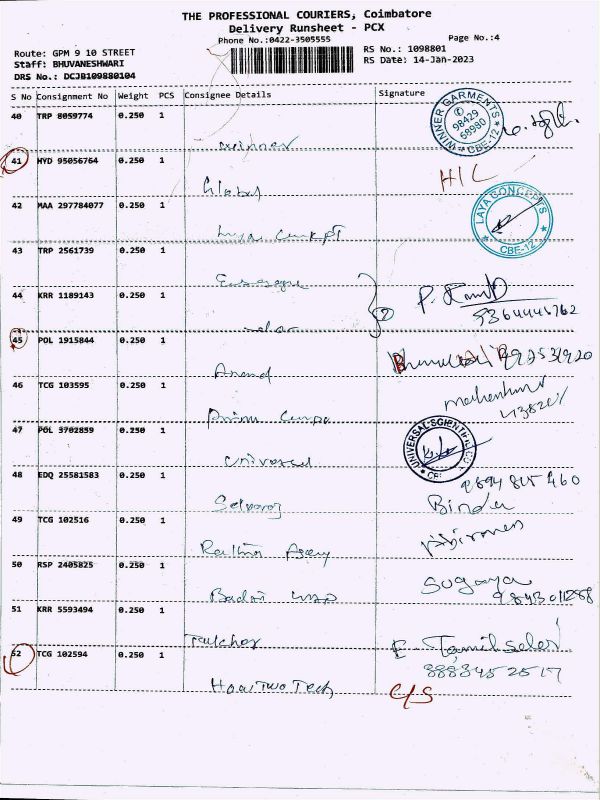 THE PROFESSIONAL COURIERS, Coimbatore
Delivery Runsheet - PCX
Phone No.:0422-3505555
Page No.:4
Route: GPM 9 10 STREET
Staff: BHUVANESHWARI
DRS No.: DCJB109880104
RS No.: 1098801
RS Date: 14-Jan-2023
S No Consignment No Weight PCS Consignee Details Signature
40 TRP 8059774 0.250 1
Winner
WINNER GARMENTS 98429 68980 CBE-12
41 HYD 95056764 0.250 1
Global
H/C
42 MAA 297784077 0.250 1
Laya Concept
LAYA CONCEPTS CBE-12
43 TRP 2561739 0.250 1
44 KRR 1189143 0.250 1
2
9364445762
45 POL 1915844 0.250 1
Anand
46 TCG 103595 0.250 1
47 POL 3702859 0.250 1
Universal
UNIVERSAL SCIENTIFIC CO
48 EDQ 25581583 0.250 1
Selvaraj
9894 815 460
Binder
49 TCG 102516 0.250 1
50 RSP 2405825 0.250 1
Suganya
51 KRR 5593494 0.250 1
Talkher
E. Tamilselvi
52 TCG 102594 0.250 1
8883452517
HowTwo Tech
C/S